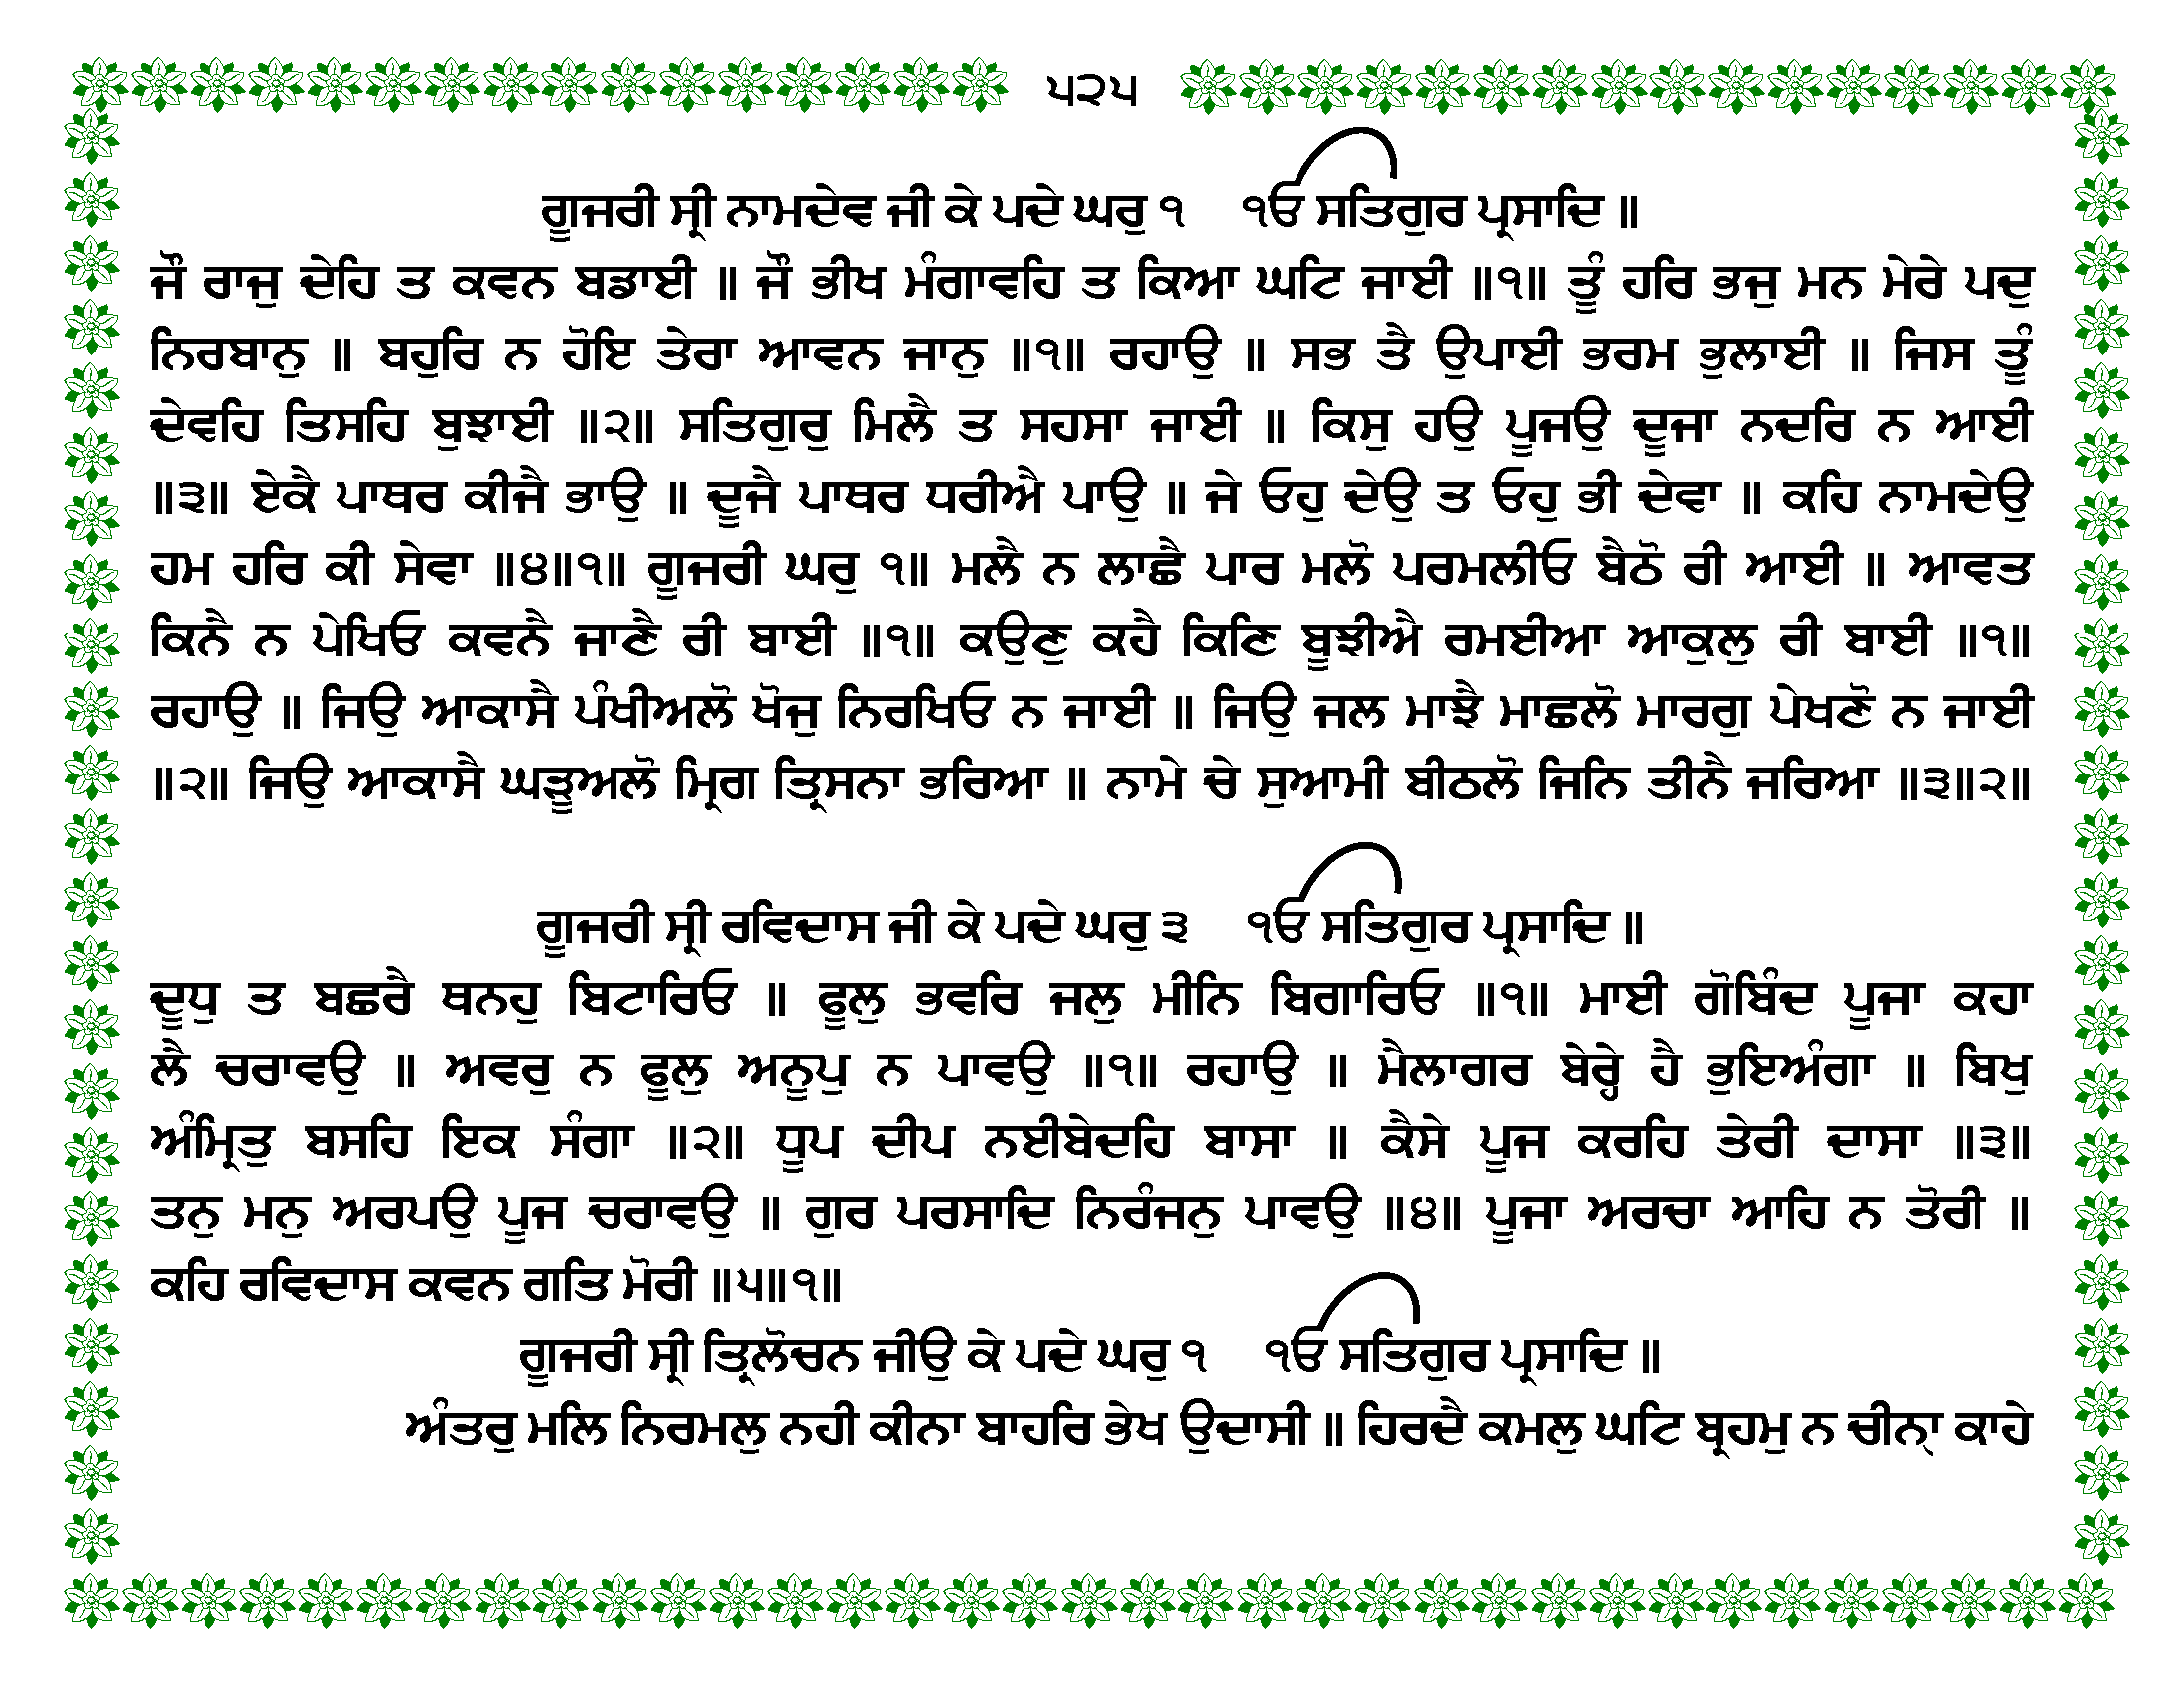 ੫੨੫
ਗੂਜਰੀ ਸ੍ਰੀ ਨਾਮਦੇਵ ਜੀ ਕੇ ਪਦੇ ਘਰੁ ੧ ੴ ਸਤਿਗੁਰ ਪ੍ਰਸਾਦਿ ॥
ਜੌ ਰਾਜੁ ਦੇਹਿ ਤ ਕਵਨ ਬਡਾਈ ॥ ਜੌ ਭੀਖ ਮੰਗਾਵਹਿ ਤ ਕਿਆ ਘਟਿ ਜਾਈ ॥੧॥ ਤੂੰ ਹਰਿ ਭਜੁ ਮਨ ਮੇਰੇ ਪਦੁ
ਨਿਰਬਾਨੁ ॥ ਬਹੁਰਿ ਨ ਹੋਇ ਤੇਰਾ ਆਵਨ ਜਾਨੁ ॥੧॥ ਰਹਾਉ ॥ ਸਭ ਤੈ ਉਪਾਈ ਭਰਮ ਭੁਲਾਈ ॥ ਜਿਸ ਤੂੰ
ਦੇਵਹਿ ਤਿਸਹਿ ਬੁਝਾਈ ॥੨॥ ਸਤਿਗੁਰੁ ਮਿਲੈ ਤ ਸਹਸਾ ਜਾਈ ॥ ਕਿਸੁ ਹਉ ਪੂਜਉ ਦੂਜਾ ਨਦਰਿ ਨ ਆਈ
॥੩॥ ਏਕੈ ਪਾਥਰ ਕੀਜੈ ਭਾਉ ॥ ਦੂਜੈ ਪਾਥਰ ਧਰੀਐ ਪਾਉ ॥ ਜੇ ਓਹੁ ਦੇਉ ਤ ਓਹੁ ਭੀ ਦੇਵਾ ॥ ਕਹਿ ਨਾਮਦੇਉ
ਹਮ ਹਰਿ ਕੀ ਸੇਵਾ ॥੪॥੧॥ ਗੂਜਰੀ ਘਰੁ ੧॥ ਮਲੈ ਨ ਲਾਛੈ ਪਾਰ ਮਲੋ ਪਰਮਲੀਓ ਬੈਠੋ ਰੀ ਆਈ ॥ ਆਵਤ
ਕਿਨੈ ਨ ਪੇਖਿਓ ਕਵਨੈ ਜਾਣੈ ਰੀ ਬਾਈ ॥੧॥ ਕਉਣੁ ਕਹੈ ਕਿਣਿ ਬੂਝੀਐ ਰਮਈਆ ਆਕੁਲੁ ਰੀ ਬਾਈ ॥੧॥
ਰਹਾਉ ॥ ਜਿਉ ਆਕਾਸੈ ਪੰਖੀਅਲੋ ਖੋਜੁ ਨਿਰਖਿਓ ਨ ਜਾਈ ॥ ਜਿਉ ਜਲ ਮਾਝੈ ਮਾਛਲੋ ਮਾਰਗੁ ਪੇਖਣੋ ਨ ਜਾਈ
॥੨॥ ਜਿਉ ਆਕਾਸੈ ਘੜੂਅਲੋ ਮ੍ਰਿਗ ਤ੍ਰਿਸਨਾ ਭਰਿਆ ॥ ਨਾਮੇ ਚੇ ਸੁਆਮੀ ਬੀਠਲੋ ਜਿਨਿ ਤੀਨੈ ਜਰਿਆ ॥੩॥੨॥
ਗੂਜਰੀ ਸ੍ਰੀ ਰਵਿਦਾਸ ਜੀ ਕੇ ਪਦੇ ਘਰੁ ੩ ੴ ਸਤਿਗੁਰ ਪ੍ਰਸਾਦਿ ॥
ਦੂਧੁ ਤ ਬਛਰੈ ਥਨਹੁ ਬਿਟਾਰਿਓ ॥ ਫੂਲੁ ਭਵਰਿ ਜਲੁ ਮੀਨਿ ਬਿਗਾਰਿਓ ॥੧॥ ਮਾਈ ਗੋਬਿੰਦ ਪੂਜਾ ਕਹਾ
ਲੈ ਚਰਾਵਉ ॥ ਅਵਰੁ ਨ ਫੂਲੁ ਅਨੂਪੁ ਨ ਪਾਵਉ ॥੧॥ ਰਹਾਉ ॥ ਮੈਲਾਗਰ ਬੇਰ੍ਹੇ ਹੈ ਭੁਇਅੰਗਾ ॥ ਬਿਖੁ
ਅੰਮ੍ਰਿਤੁ ਬਸਹਿ ਇਕ ਸੰਗਾ ॥੨॥ ਧੂਪ ਦੀਪ ਨਈਬੇਦਹਿ ਬਾਸਾ ॥ ਕੈਸੇ ਪੂਜ ਕਰਹਿ ਤੇਰੀ ਦਾਸਾ ॥੩॥
ਤਨੁ ਮਨੁ ਅਰਪਉ ਪੂਜ ਚਰਾਵਉ ॥ ਗੁਰ ਪਰਸਾਦਿ ਨਿਰੰਜਨੁ ਪਾਵਉ ॥੪॥ ਪੂਜਾ ਅਰਚਾ ਆਹਿ ਨ ਤੋਰੀ ॥
ਕਹਿ ਰਵਿਦਾਸ ਕਵਨ ਗਤਿ ਮੋਰੀ ॥੫॥੧॥
ਗੂਜਰੀ ਸ੍ਰੀ ਤ੍ਰਿਲੋਚਨ ਜੀਉ ਕੇ ਪਦੇ ਘਰੁ ੧ ੴ ਸਤਿਗੁਰ ਪ੍ਰਸਾਦਿ ॥
ਅੰਤਰੁ ਮਲਿ ਨਿਰਮਲੁ ਨਹੀ ਕੀਨਾ ਬਾਹਰਿ ਭੇਖ ਉਦਾਸੀ ॥ ਹਿਰਦੈ ਕਮਲੁ ਘਟਿ ਬ੍ਰਹਮੁ ਨ ਚੀਨ੍ਹਾ ਕਾਹੇ